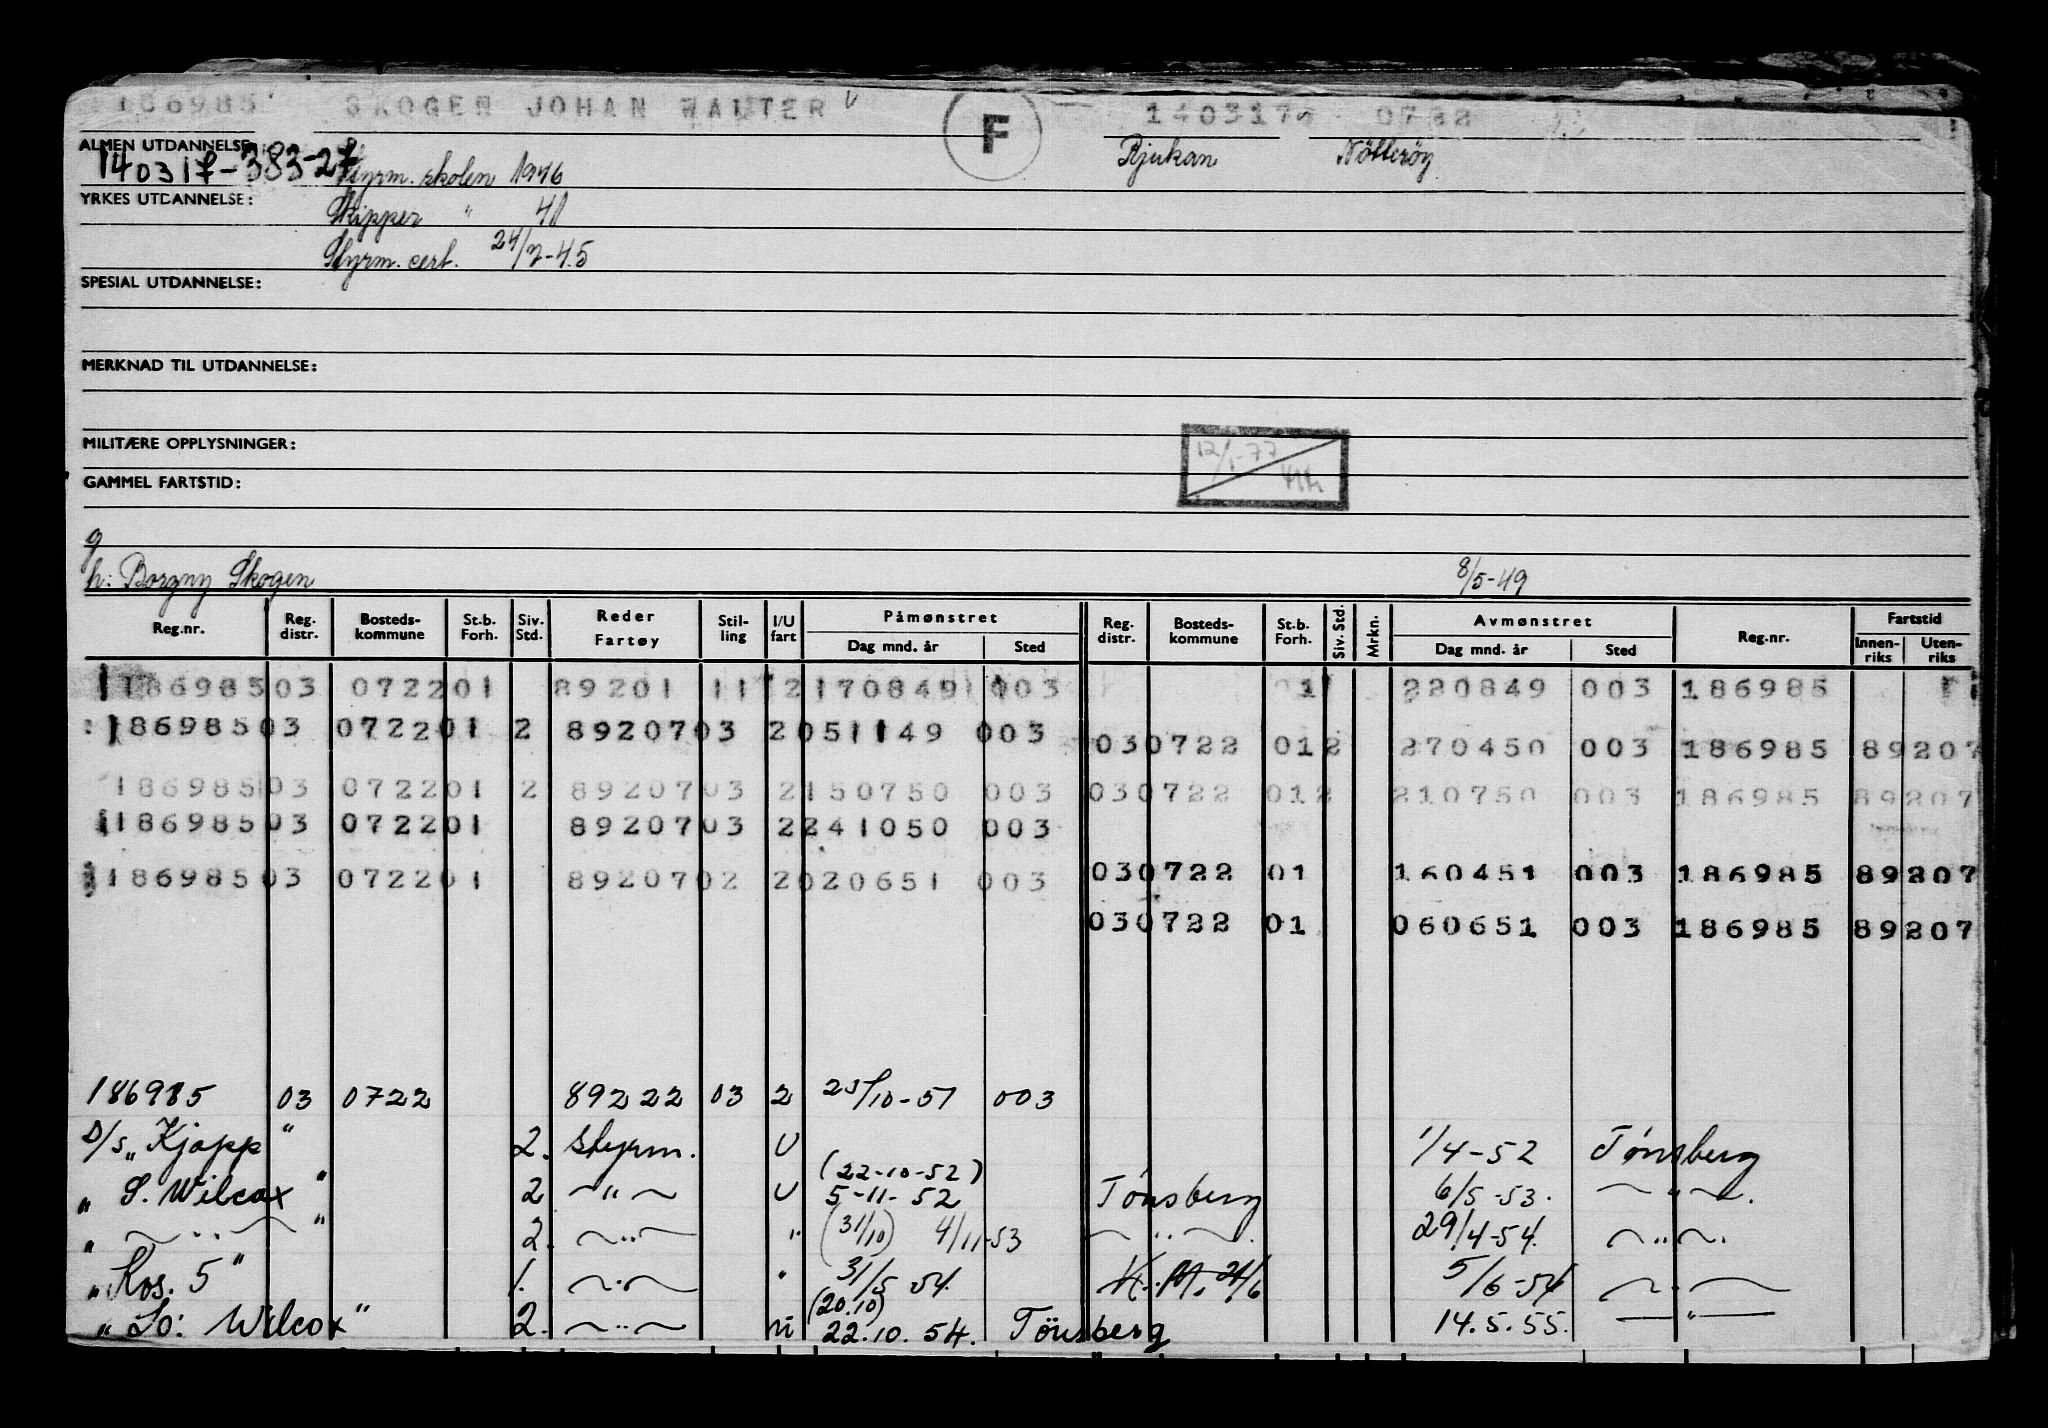 186985 SKOGEN JOHAN WALTER F 140317 0722
ALMEN UTDANNELSE: Rjukan Nötteröy
140317-383-27 Styrm. skolen 1946
YRKES UTDANNELSE: Skipper " 48
Styrm. cert. 24/2-45
SPESIAL UTDANNELSE:
MERKNAD TIL UTDANNELSE:
MILITÆRE OPPLYSNINGER: 12/1-77
GAMMEL FARTSTID:
g
h: Borgny Skogen 8/5-49
Reg.nr. Reg. distr. Bosteds-kommune St.b. Forh. Siv. Std. Reder Fartøy Stil-ling I/U fart Påmønstret Dag mnd. år Sted Reg. distr. Bosteds-kommune St.b. Forh. Siv. Std. Mrkn. Avmønstret Dag mnd. år Sted Reg.nr. Fartstid Innen-riks Uten-riks
186985 03 0722 01 89201 11 2 170849 003 01 220849 003 186985
186985 03 0722 01 2 89207 03 2 051149 003
03 0722 01 2 270450 003 186985 89207
186985 03 0722 01 2 89207 03 2 150750 003 03 0722 01 2 210750 003 186985 89207
186985 03 0722 01 89207 03 2 241050 003
03 0722 01 160451 003 186985 89207
186985 03 0722 01 89207 02 2 020651 003
03 0722 01 060651 003 186985 89207
186985 03 0722 89222 03 2 25/10-51 003
D/s „Kjapp" 2. styrm. U 1/4-52 Tønsberg
(22-10-52)
„ S. Wilcox " 2 ~"~ U 5-11-52 Tønsberg 6/5-53. ~"~.
„ ~"~ " 2. ~"~ " (31/10) 4/11-53 ~"~. 29/4-54. ~"~.
„ Kos. 5" 1. ~"~ " 31/5 54. 24/6 5/6-54 ~"~
(20.10)
„ So: Wilcox" 2. ~"~ 22.10.54. Tönsberg 14.5.55. —"—